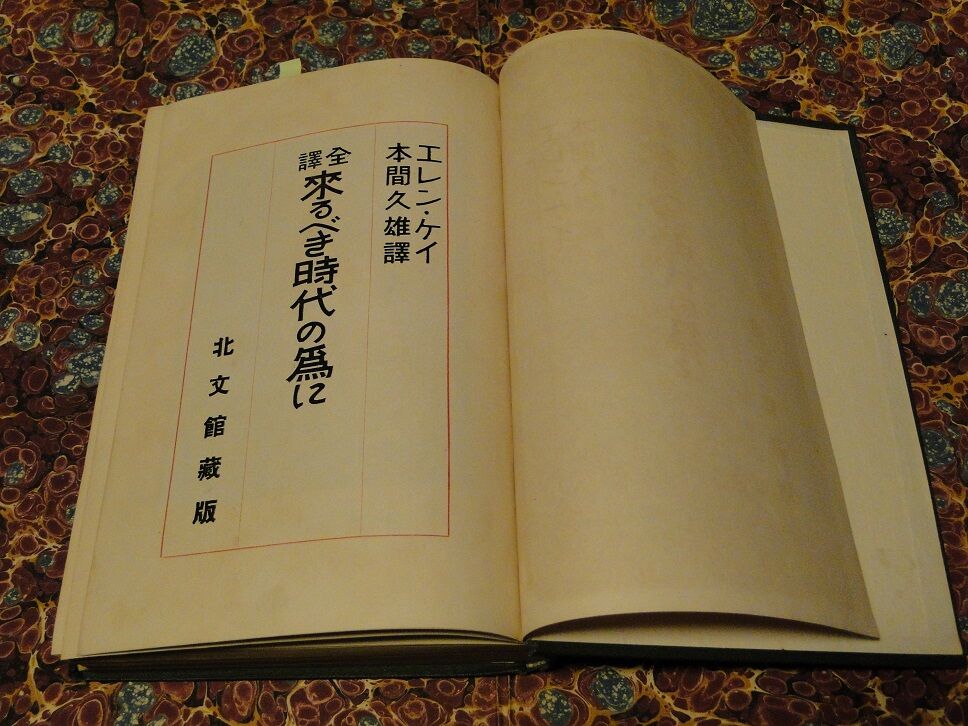 エレン・ケイ
本間久雄譯
全譯
來るべき時代の爲に
北文館藏版